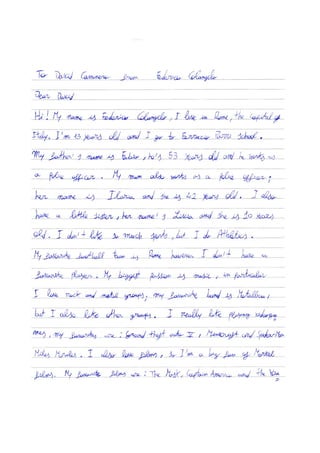 To: David Cameron from Federico Colangelo
Dear David
Hi! My name is Federico Colangelo, I live in Rome, the capital of
Italy. I'm 13 years old and I go to Ferruccio Parri school.
My father's name is Fabio, he's 53 years old and he works as
a police officer. My mum also works as a police officer;
her name is Ilaria and she is 42 years old. I also
have a little sister, her name's Livia and she is 10 years
old. I don't like so much sports, but I do Athletics.
My favourite football team is Rome however I don't have a
favourite player. My biggest passion is music, in particular
I love rock and metal groups; my favourite band is Metallica,
but I also like other groups. I really like playing videoga
mes, my favourites are: Grand theft auto V, Minecraft and Spider-Man
Miles Morales. I also love films, so I'm a big fan of Marvel
films. My favourite films are: The Mask, Captain America and the